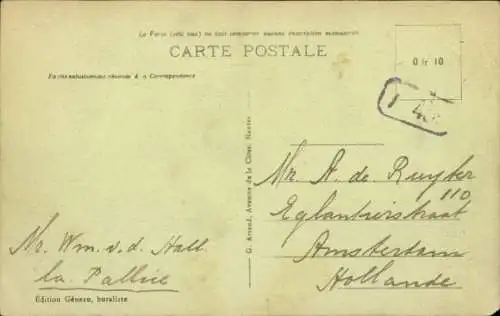 La Farce (côté vue) ne doit comporter aucune inscription manuscrite
CARTE POSTALE
0 fr 10
Partie exclusivement réservée à la Correspondance
G. Artaud, Avenue de la Côte, Nantes
Mr. A. de Ruyter
110
Eglantierstraat
Amsterdam
Hollande
Mr. Wm. v. d. Hall
La Pallice
Edition Géneau, buraliste